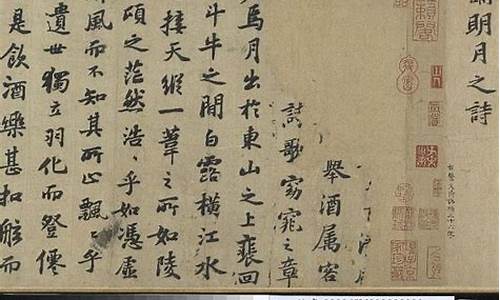 明月之詩
舉酒属客
歌窈窕之章
焉月出於東山之上裴回
斗牛之間白露橫江水
接天縱一葦之所如陵
頃之茫然浩〻乎如憑虛
風而不知其所止飄〻乎
遺世獨立羽化而登僊
是飲酒樂甚扣舷而